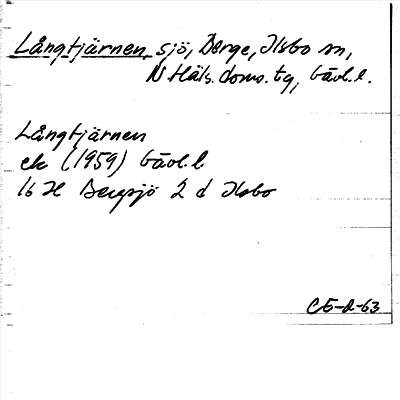 Långtjärnen, sjö, Berge, Ilsbo sn,
N Häls. doms. tg, Gävl. l.
Långtjärnen
ek (1959) Gävl. l
16 H Bergsjö 2 d Ilsbo
CE-A-63